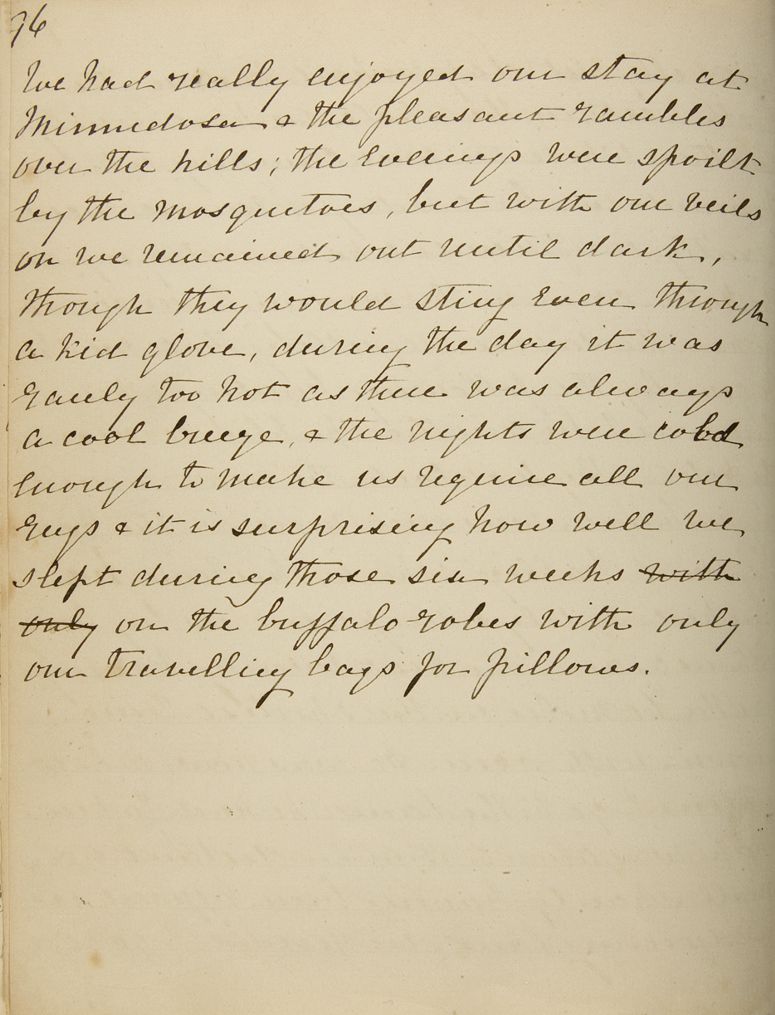 76
We had really enjoyed our stay at
Minnedosa & the pleasant rambles
over the hills; the evenings were spoilt
by the mosquitoes, but with our veils
on we remained out until dark,
though they would sting even through
a kid glove, during the day it was
rarely too hot as there was always
a cool breeze, & the nights were cold
enough to make us require all our
rugs & it is surprising how well we
slept during those six weeks with
only on the buffalo robes with only
our travelling bags for pillows.